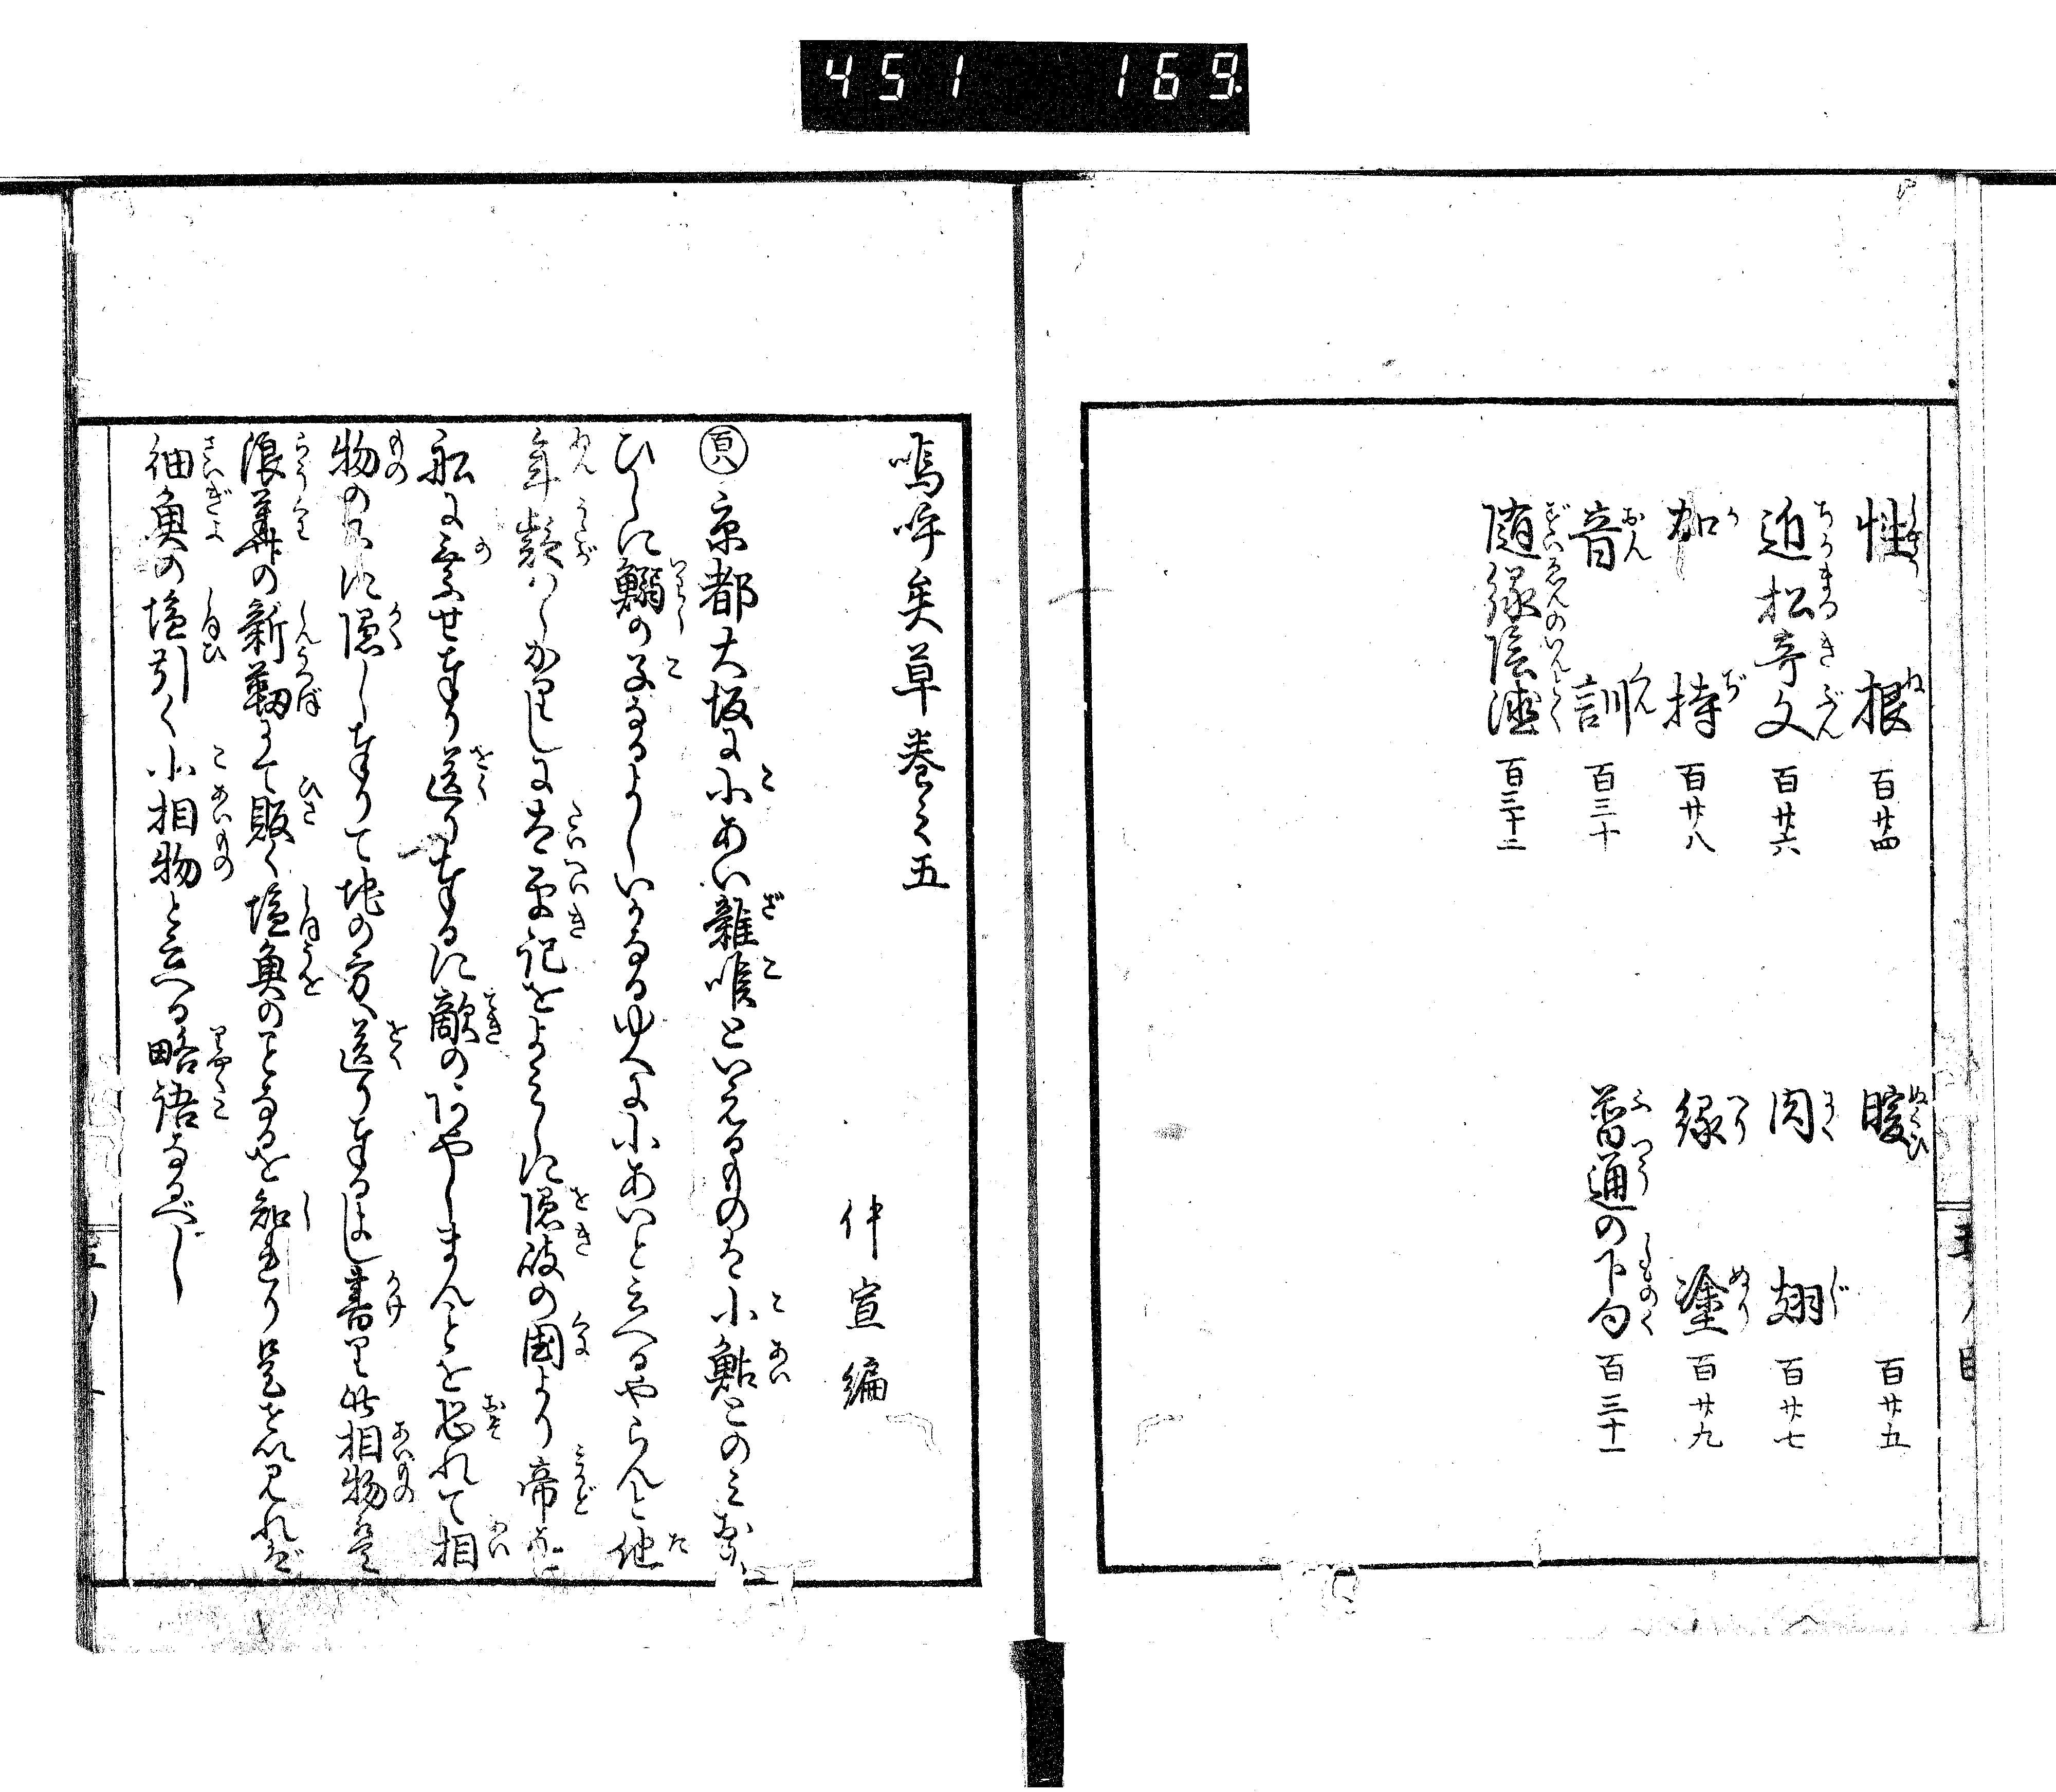 451 169
性根 百廿四
暖 百廿五
近松奇文 百廿六
肉翅 百廿七
加持 百廿八
縁塗 百廿九
音訓 百三十
普通の下句 百三十一
随縁陰徳 百三十二
嗚呼矣草巻之五
仲宣編
百八 京都大坂に小あい雑喉といえるものは小鮎とのミおもひ
ひしに鰯の子なるよしいかなるゆへに小あいと云へるやらんと他
年疑ハしかりしに太平記をよミしに隠岐の国より帝を
船に乗せ奉り送り奉るに敵のあやしまんことを恐れて相
物の下に隠し奉りて地の方へ送り奉るよし書り此相物は
浪華の新靱にて販く塩魚のことなるを知れり是を以見れば
細魚の塩引く小相物と云へる略語なるべし